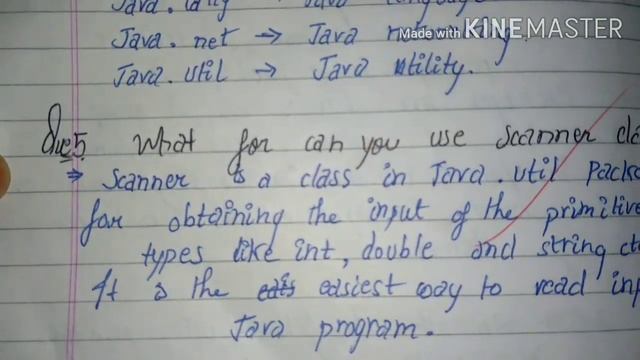 Java. lang → Java
Java. net → Java networking
Made with KINEMASTER
Java. util → Java utility.
Que5 What for can you use scanner cla
⇒ scanner is a class in Java. util packa
for obtaining the input of the primitive
types like int, double and string etc
It is the easiest way to read inp
Java program.